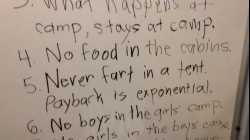 3. What happens at
camp, stays at camp.
4. No food in the cabins.
5. Never fart in a tent.
Payback is exponential.
6. No boys in the girls' camp.
No girls in the boys camp